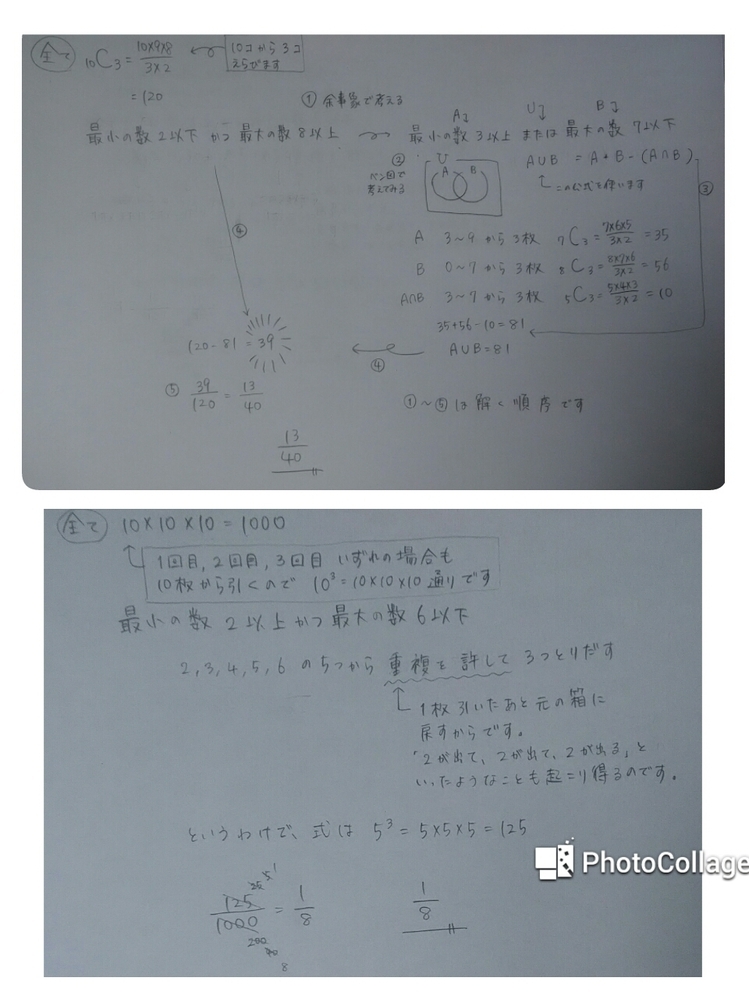 全て 10C3 = 10×9×8/3×2 10コから3コ えらびます
= 120
① 余事象で考える
A↓ U↓ B↓
最小の数2以下 かつ 最大の数8以上 → 最小の数3以上 または 最大の数7以下
② ベン図で考えてみる U A B
A∪B = A + B - (A∩B)
この公式を使います
③
A 3～9から3枚 7C3 = 7×6×5/3×2 = 35
B 0～7から3枚 8C3 = 8×7×6/3×2 = 56
A∩B 3～7から3枚 5C3 = 5×4×3/3×2 = 10
35+56-10=81
A∪B=81
④
④
120-81=39
⑤ 39/120 = 13/40
①～⑤は解く順序です
13/40
全て 10×10×10=1000
1回目,2回目,3回目 いずれの場合も
10枚から引くので 10³=10×10×10通りです
最小の数2以上かつ最大の数6以下
2,3,4,5,6の5つから重複を許して3つとりだす
1枚引いたあと元の箱に
戻すからです。
「2が出て、2が出て、2が出る」と
いったようなことも起こり得るのです。
というわけで、式は 5³=5×5×5=125
125/1000 = 1/8
25 5 1
200 40 8
1/8
PhotoCollage